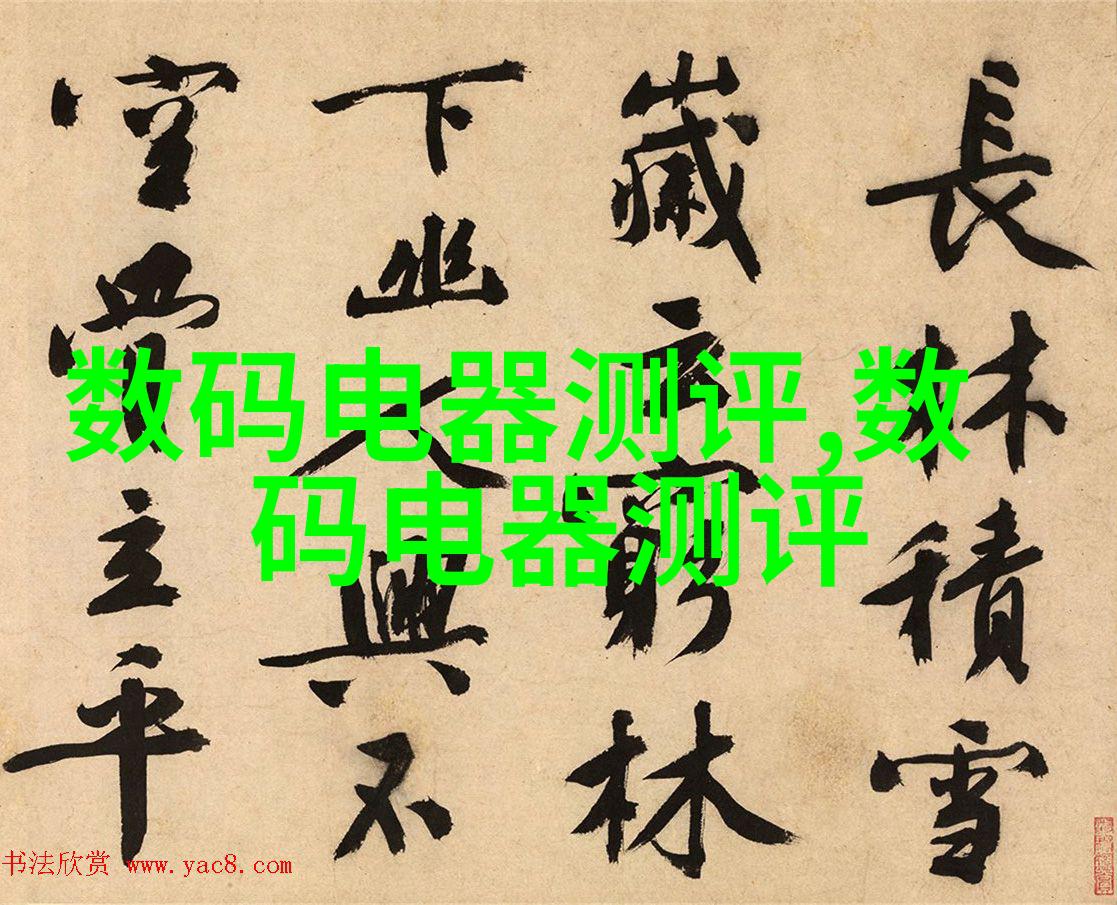 長林積雪
歲云窮林
下幽人興不
空立平
数码电器测评,数
码电器测评
书法欣赏 www.yac8.com